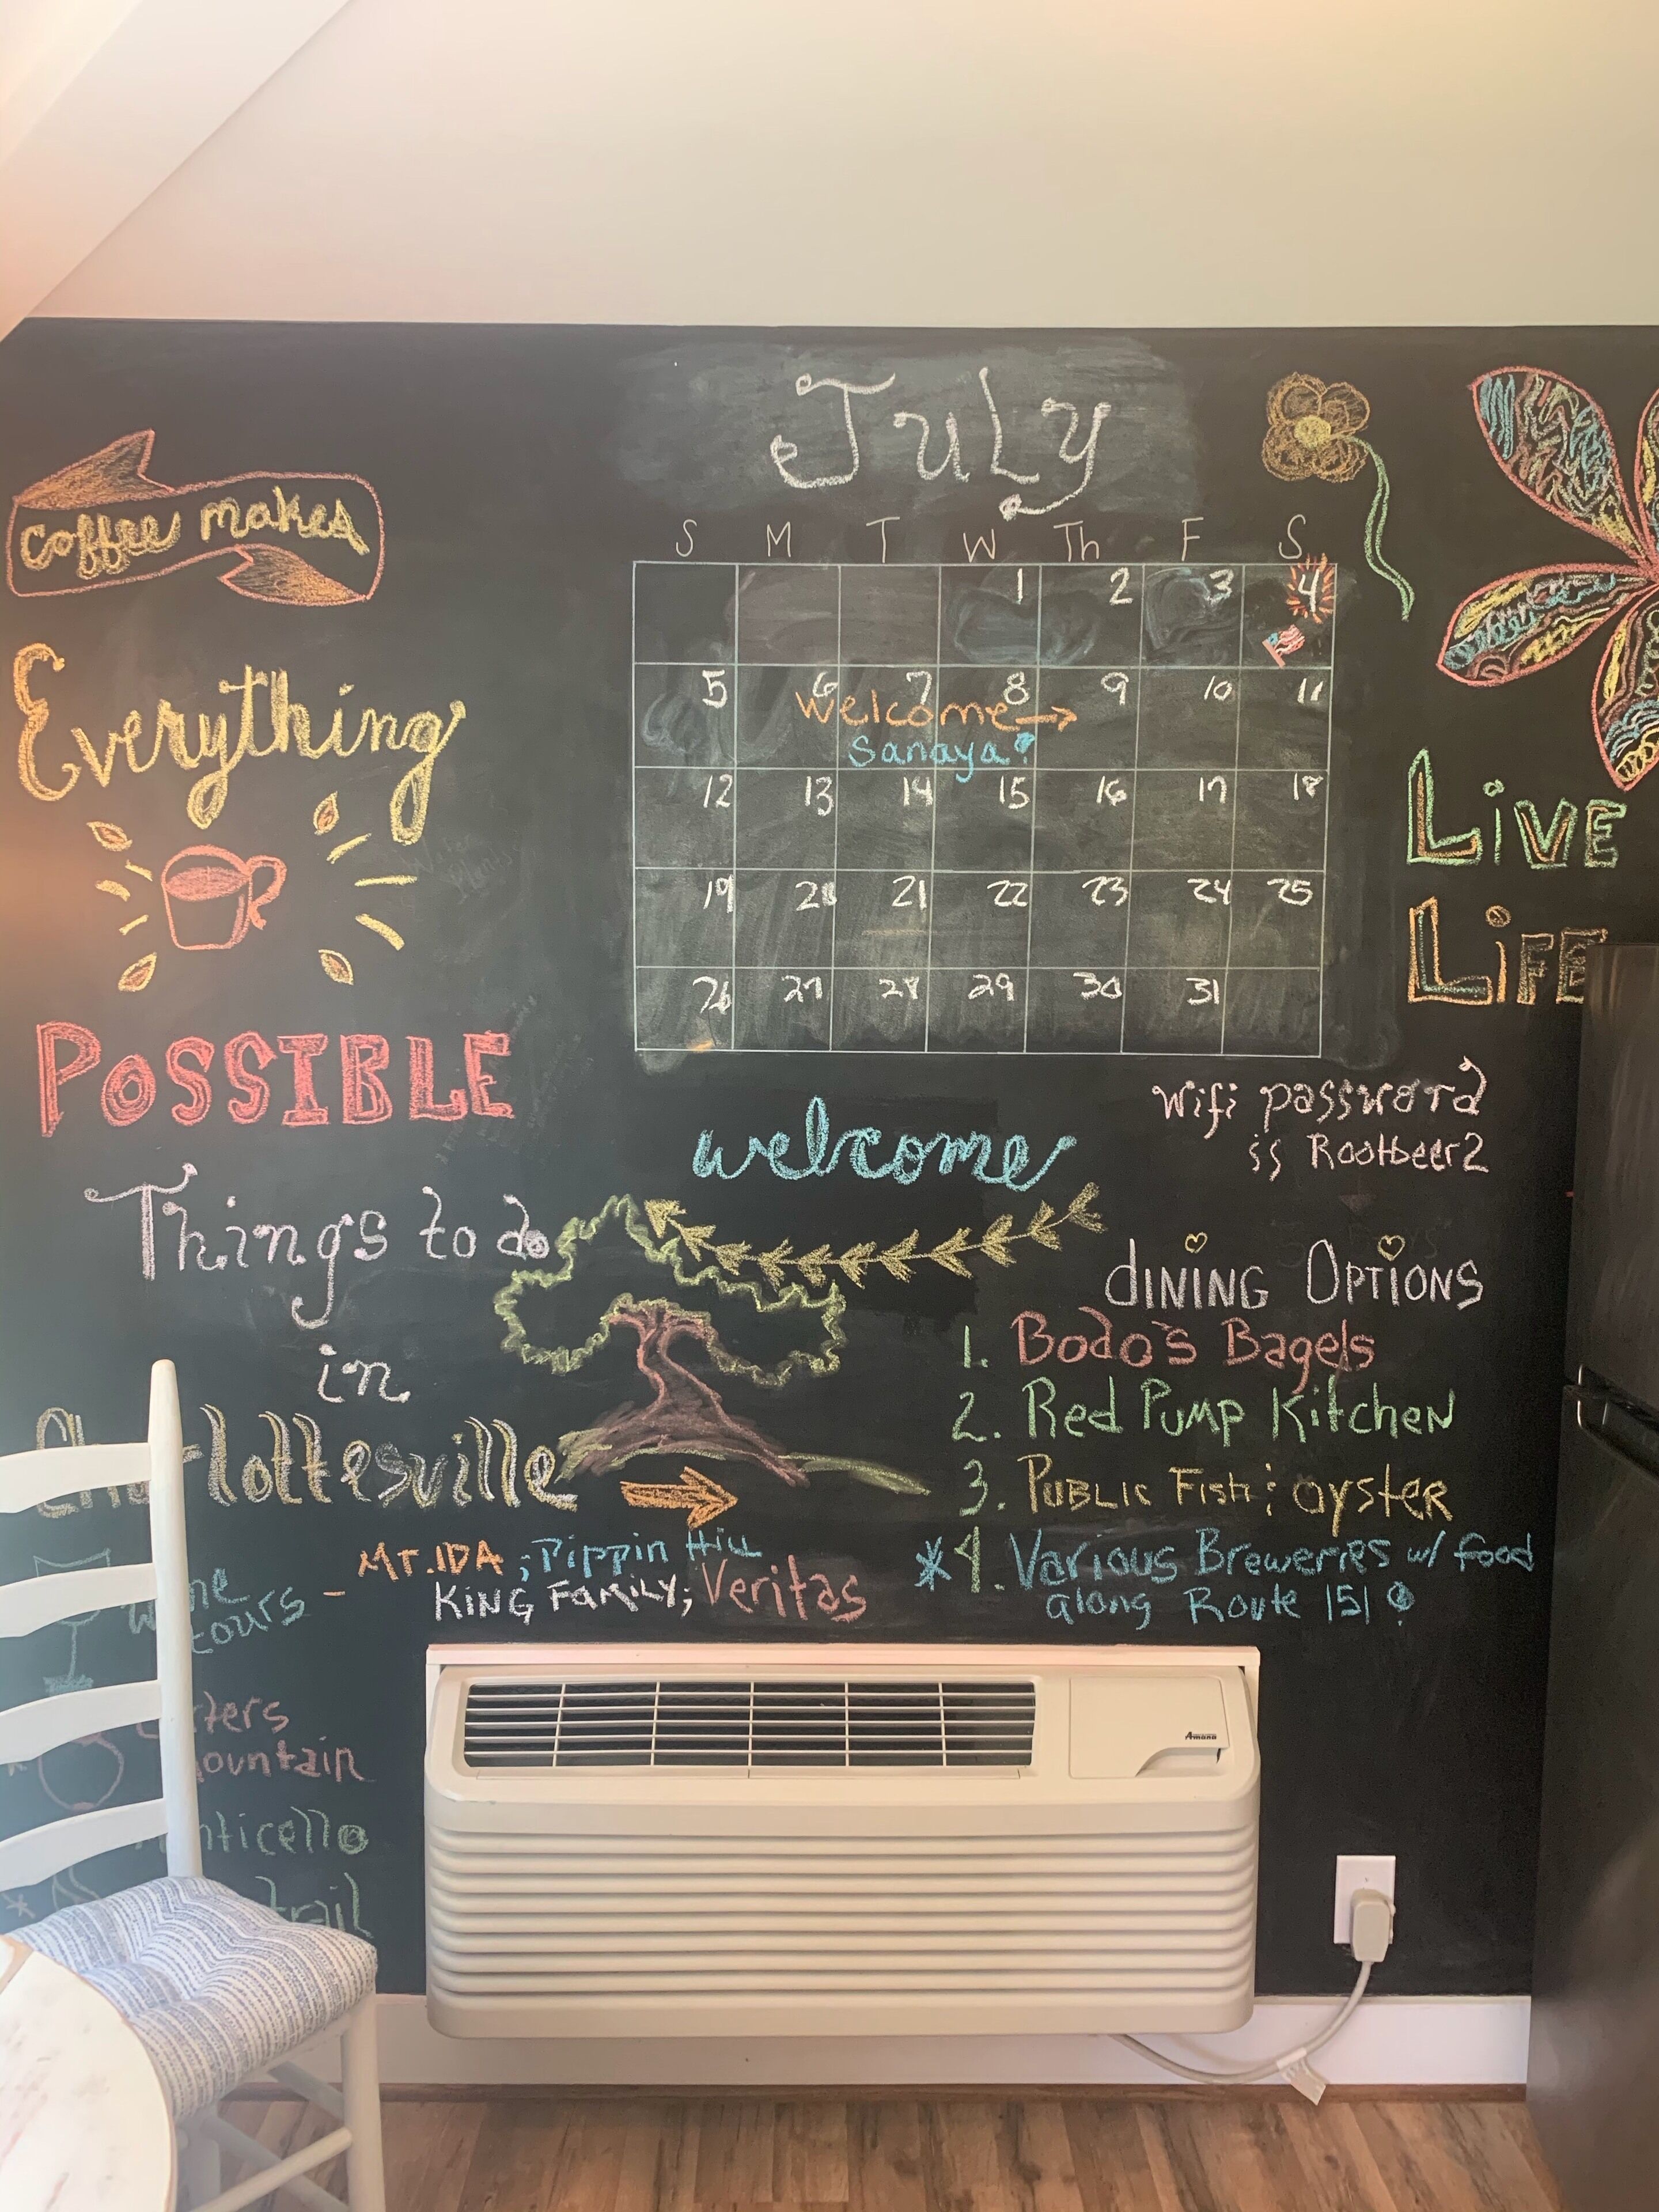 July
coffee makes
Everything
POSSIBLE
S M T W Th F S
1 2 3 4
5 6 7 8 9 10 11
Welcome →
Sanaya!
12 13 14 15 16 17 18
19 20 21 22 23 24 25
26 27 28 29 30 31
LiVE
LiFE
Wifi password
is Rootbeer2
welcome
Things to do
in
Charlottesville
wine
tours -
MT. IDA ; Pippin Hill
KING FAMILY; Veritas
Carters
Mountain
Monticello
trail
dINING OPTIONS
1. Bodo's Bagels
2. Red Pump Kitchen
3. PUBLIC Fish & oyster
*4. Various Breweries w/ food
along Route 151!
Amana